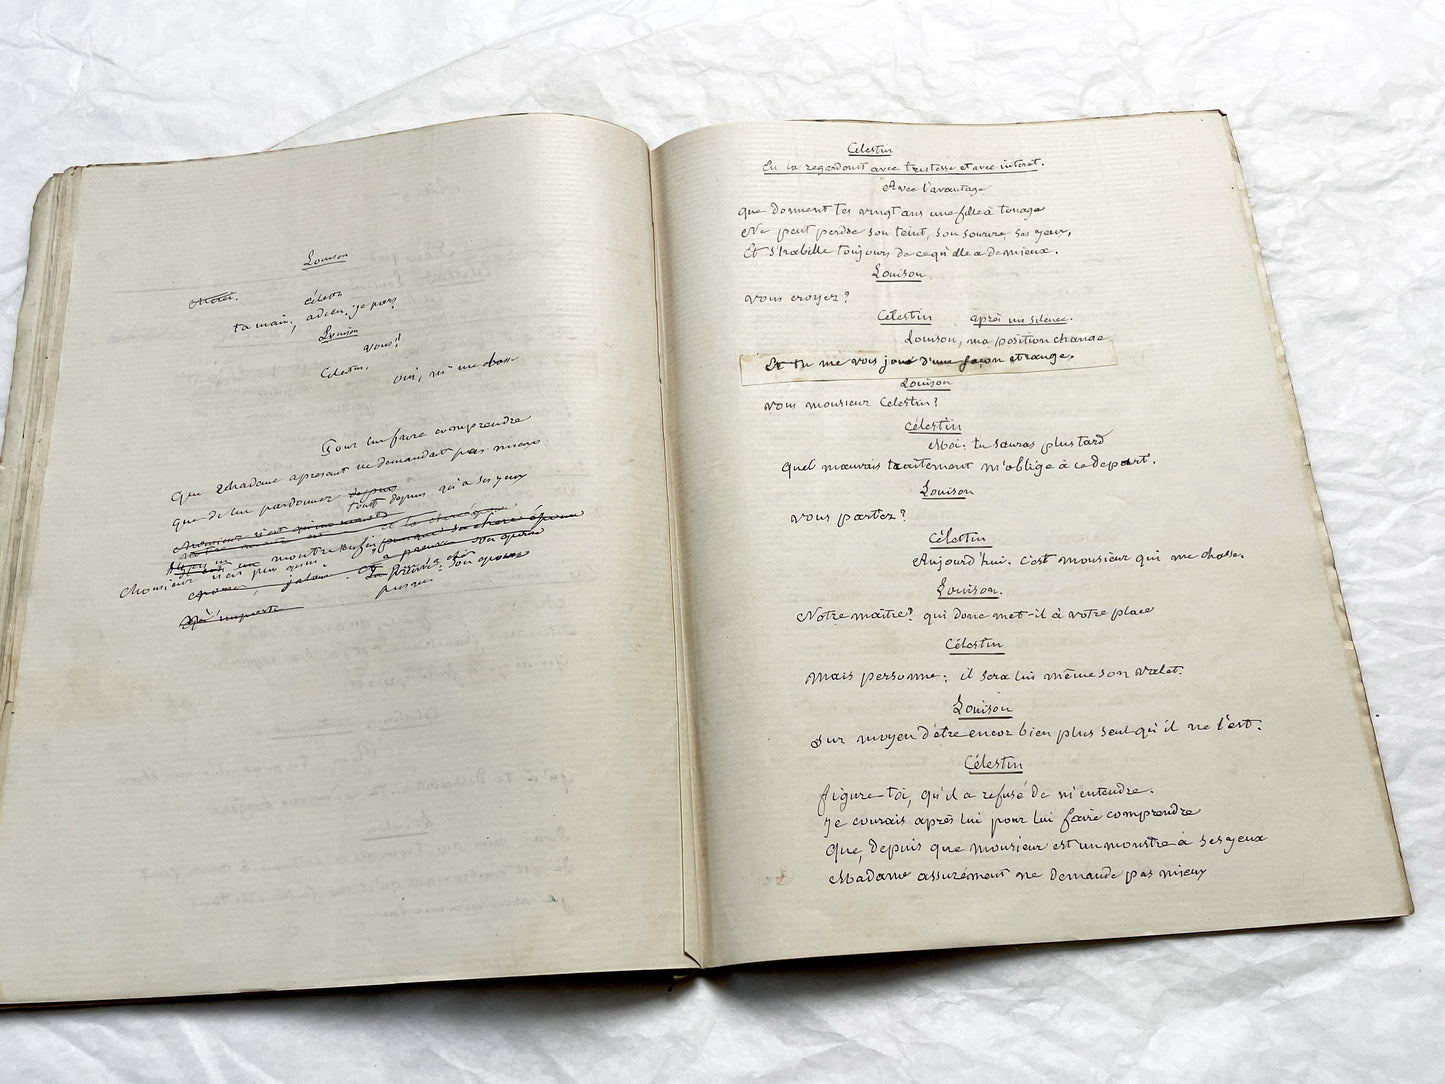 Louison
Merci.
Célestin
ta main, adieu. je pars
Louison
vous!
Célestin.
oui, me chasse
Pour lui faire comprendre
Que Madame à présent ne demandait pas mieux
que de lui pardonner depuis
tout depuis qu'à ses yeux
Monsieur
montre enfin
Monsieur
jalouse
qu'importe
Célestin
En la regardant avec tristesse et avec intérêt.
Avec l'avantage
que donnent tes vingt ans une fille à ton age
Ne peut perdre son teint, son sourire, ses yeux,
Et s'habille toujours de ce qu'elle a de mieux.
Louison
Vous croyez?
Célestin après un silence.
Louison, ma position change
Et tu me vois joué d'une façon etrange.
Louison
Vous monsieur Celestin?
Célestin
Moi: tu sauras plus tard
Quel mauvais traitement m'oblige à ce départ.
Louison
Vous partez?
Célestin
Aujourd'hui. c'est monsieur qui me chasse.
Louison.
Notre maître? qui donc met-il à votre place
Célestin
Mais personne: il sera lui même son valet.
Louison
Sur moyen d'être encor bien plus seul qu'il ne l'est.
Célestin
figure-toi, qu'il a refusé de m'entendre.
Je courais après lui pour lui faire comprendre
Que, depuis que monsieur est un monstre à ses yeux
Madame assurément ne demande pas mieux